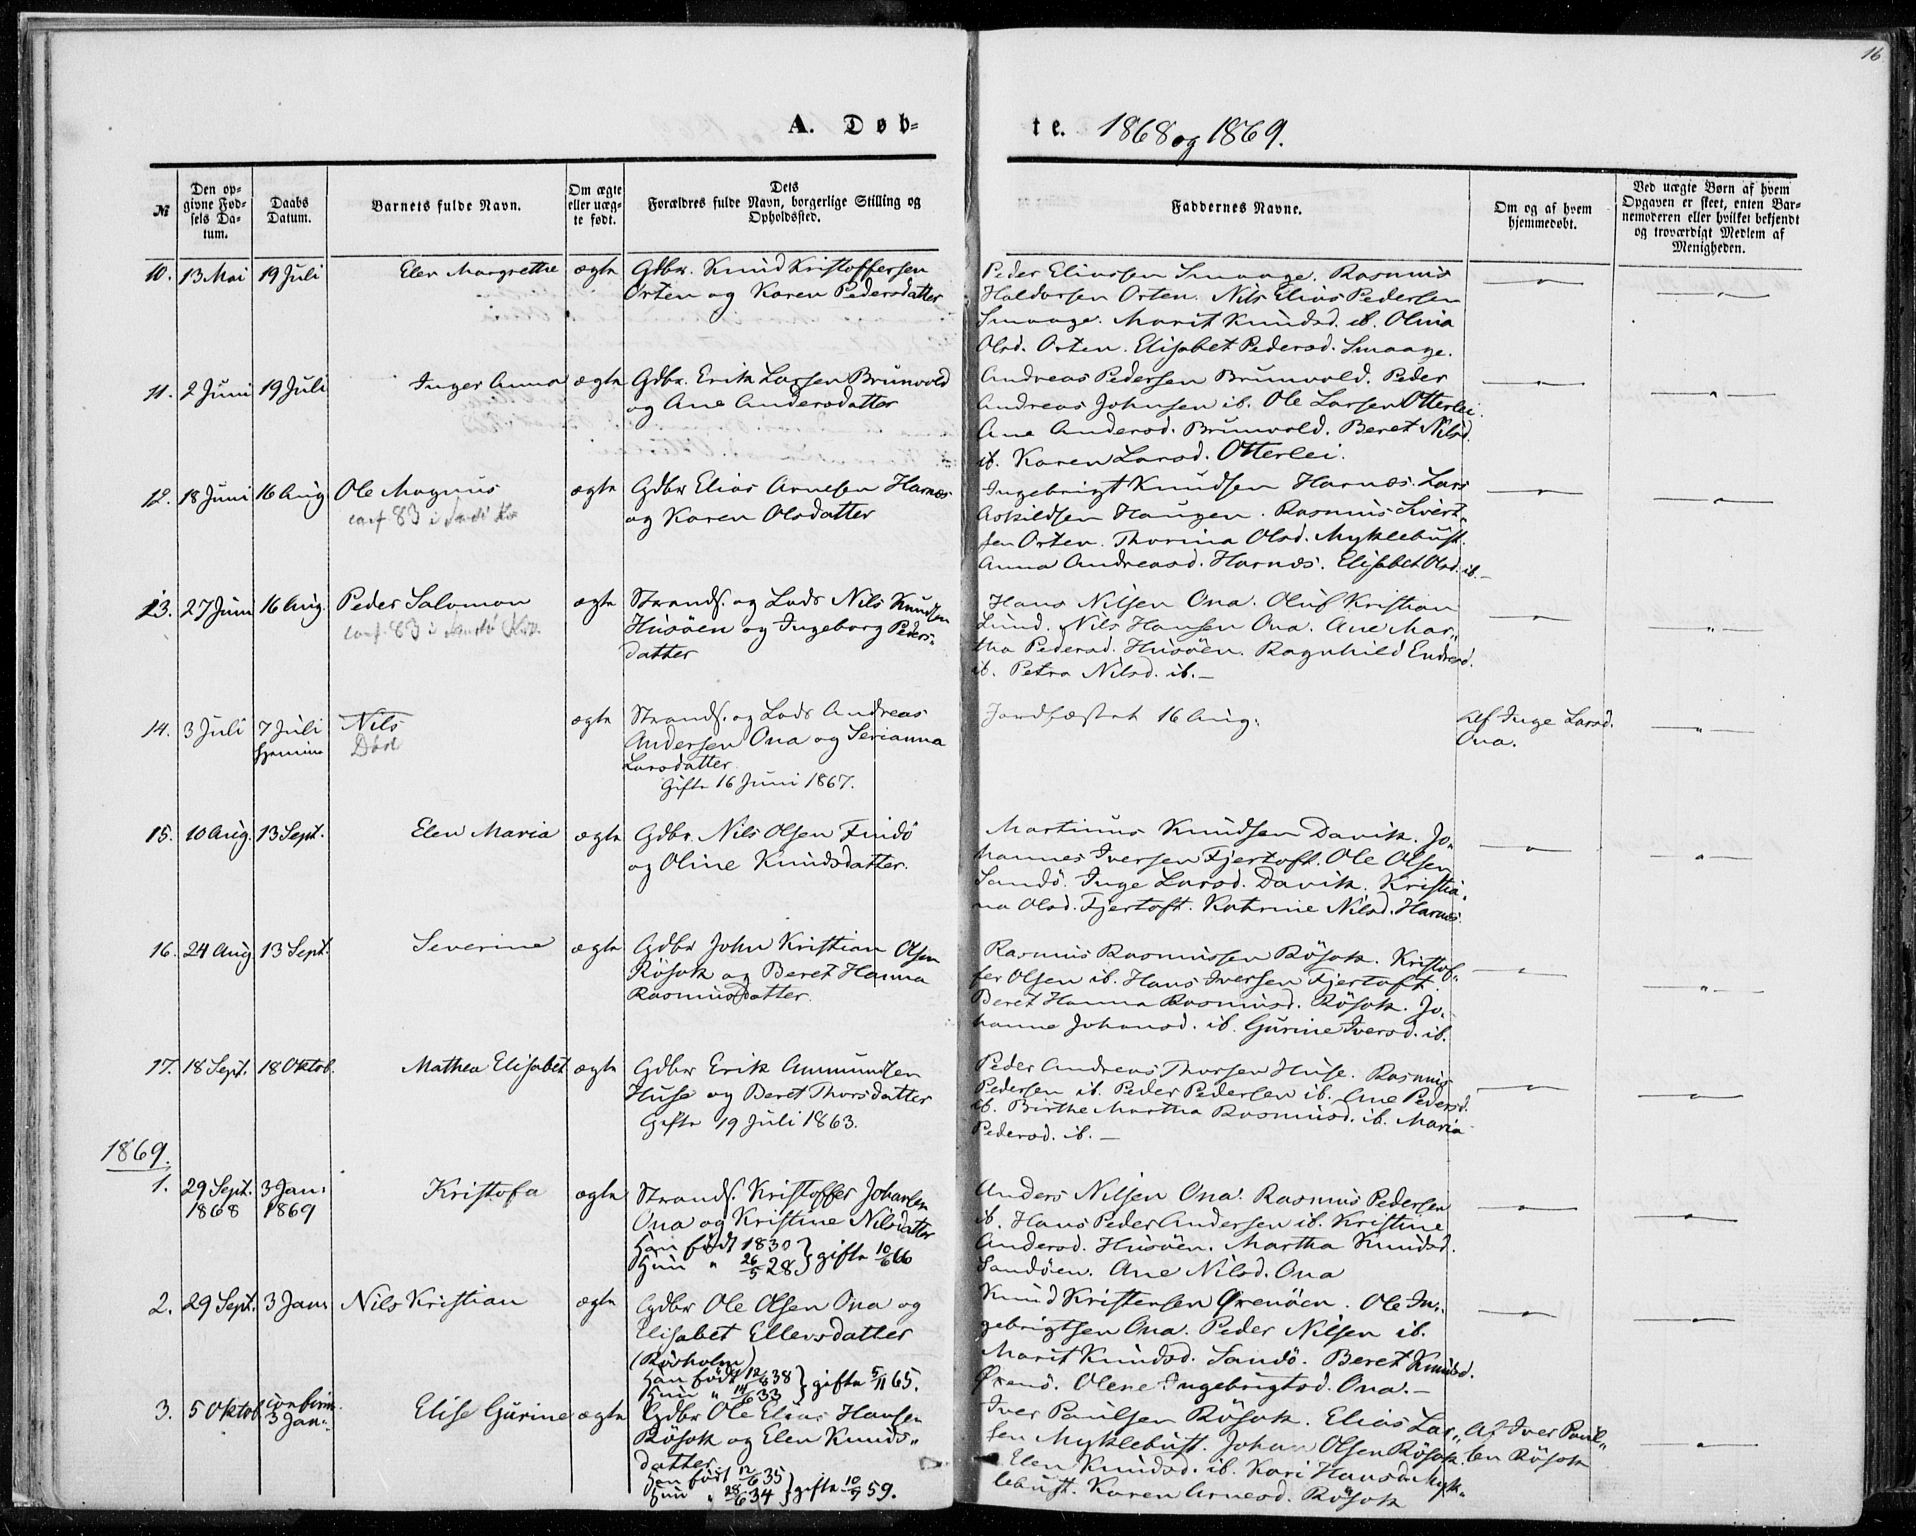 16
A. Døb-
te. 1868 og 1869.
№
Den op-
givne Fød-
sels Da-
tum.
Daabs
Datum.
Barnets fulde Navn.
Om ægte
eller uæg-
te født.
Dets
Forældres fulde Navn, borgerlige Stilling og
Opholdssted.
Faddernes Navne.
Om og af hvem
hjemmedøbt.
Ved uægte Børn af hvem
Opgaven er skeet, enten Bar-
nemoderen eller hvilket bekjendt
og troværdigt Medlem af
Menigheden.
10. 13 Mai 19 Juli Elen Margrethe ægte Gdbr. Knud Kristoffersen
Orten og Karen Pedersdatter
Peder Eliassen Smaage. Rasmus
Haldorsen Orten. Nils Elias Pedersen
Smaage. Marit Knudsd. ib. Olina
Olsd. Orten. Elisabet Pedersd. Smaage.
11. 2 Juni 19 Juli Inger Anna ægte Gdbr. Erik Larsen Brunvold
og Ane Andersdatter
Andreas Pedersen Brunvold. Peder
Andreas Johnsen ib. Ole Larsen Otterlei.
Ane Andersd. Brunvold. Beret Nilsd.
ib. Karen Larsd. Otterlei.
12. 18 Juni 16 Aug. Ole Magnus ægte Gdbr Elias Arnesen Harnæs
conf 83 i Sandö K
og Karen Olsdatter
Ingebrigt Knudsen Harnæs. Lars
Askildsen Haugen. Rasmus Sivert-
sen Orten. Thorina Olsd. Myklebust.
Anna Andreasd. Harnæs. Elisabet Olsd. ib.
13. 27 Juni 16 Aug. Peder Salomon ægte Strands. og Lods Nils Knudsen
conf. 83 i Sandö K
Husöen og Ingeborg Peders-
datter
Hans Nilsen Ona. Oluf Kristian
Lund. Nils Hansen Ona. Ane Mar-
tha Pedersd. Husöen. Ragnhild Endresd.
ib. Petra Nilsd. ib.
14. 3 Juli 7 Juli Nils ægte Strands. og Lods Andreas
hjemme Död
Andersen Ona og Serianna
Larsdatter
Gifte 16 Juni 1867.
Jordfæstet 16 Aug.
Af Inge Larsd.
Ona.
15. 10 Aug. 13 Sept. Elen Maria ægte Gdbr. Nils Olsen Findö
og Oline Knudsdatter.
Martinus Knudsen Davik. Jo-
hannes Iversen Fjertoft. Ole Olsen
Sandö. Inge Larsd. Davik. Kristia-
na Olsd. Fjertoft. Katrine Nilsd. Harnæs.
16. 24 Aug. 13 Sept. Severine ægte Gdbr John Kristian Olsen
Rösok og Beret Hanna
Rasmusdatter.
Rasmus Rasmussen Rösok. Kristof-
fer Olsen ib. Hans Iversen Fjertoft.
Beret Hanna Rasmusd. Rösok. Jo-
hanne Johansd. ib. Gurine Iversd. ib.
17. 18 Sept. 18 Oktob. Mathea Elisabet ægte Gdbr Erik Ammundsen
Huse og Beret Thorsdatter
Gifte 19 Juli 1863.
Peder Andreas Thorsen Huse. Rasmus
Pedersen ib. Peder Pedersen ib. Ane Pedersd.
ib. Birthe Martha Rasmusd. ib. Maria
Pedersd. ib.
1869.
1. 29 Sept. 3 Jan. Kristofa ægte Strands. Kristoffer Johansen
1868 1869
Ona og Kristine Nilsdatter
Han født 1830 } gifte 10/6 66
Hun " 26/5 28
Anders Nilsen Ona. Rasmus Pedersen
ib. Hans Peder Andersen ib. Kristine
Andersd. Husöen. Martha Knudsd.
Sandöen. Ane Nilsd. Ona
2. 29 Sept. 3 Jan. Nils Kristian ægte Gdbr Ole Olsen Ona og
Elisabet Ellevsdatter
(Rösholm)
Han født 12/8 38 } gifte 5/11 65.
Hun " 14/6 33
Knud Kristensen Ørenöen. Ole In-
gebrigtsen Ona. Peder Nilsen ib.
Marit Knudsd. Sandö. Beret Knudsd.
Ørenö. Olene Ingebrigtsd. Ona.
3. 5 Oktob. confirm. Elise Gurine ægte Gdbr Ole Elias Hansen
3 Jan.
Rösok og Elen Knuds-
datter
Han født 12/6 35 } gifte 10/7 59.
Hun " 28/6 34
Iver Paulsen Rösok. Elias Lar-
sen Myklebust. Johan Olsen Rösok.
Elen Knudsd. ib. Kari Hansd. Myk-
lebust. Karen Arnesd. Rösok
Af Iver Paul-
sen Rösok